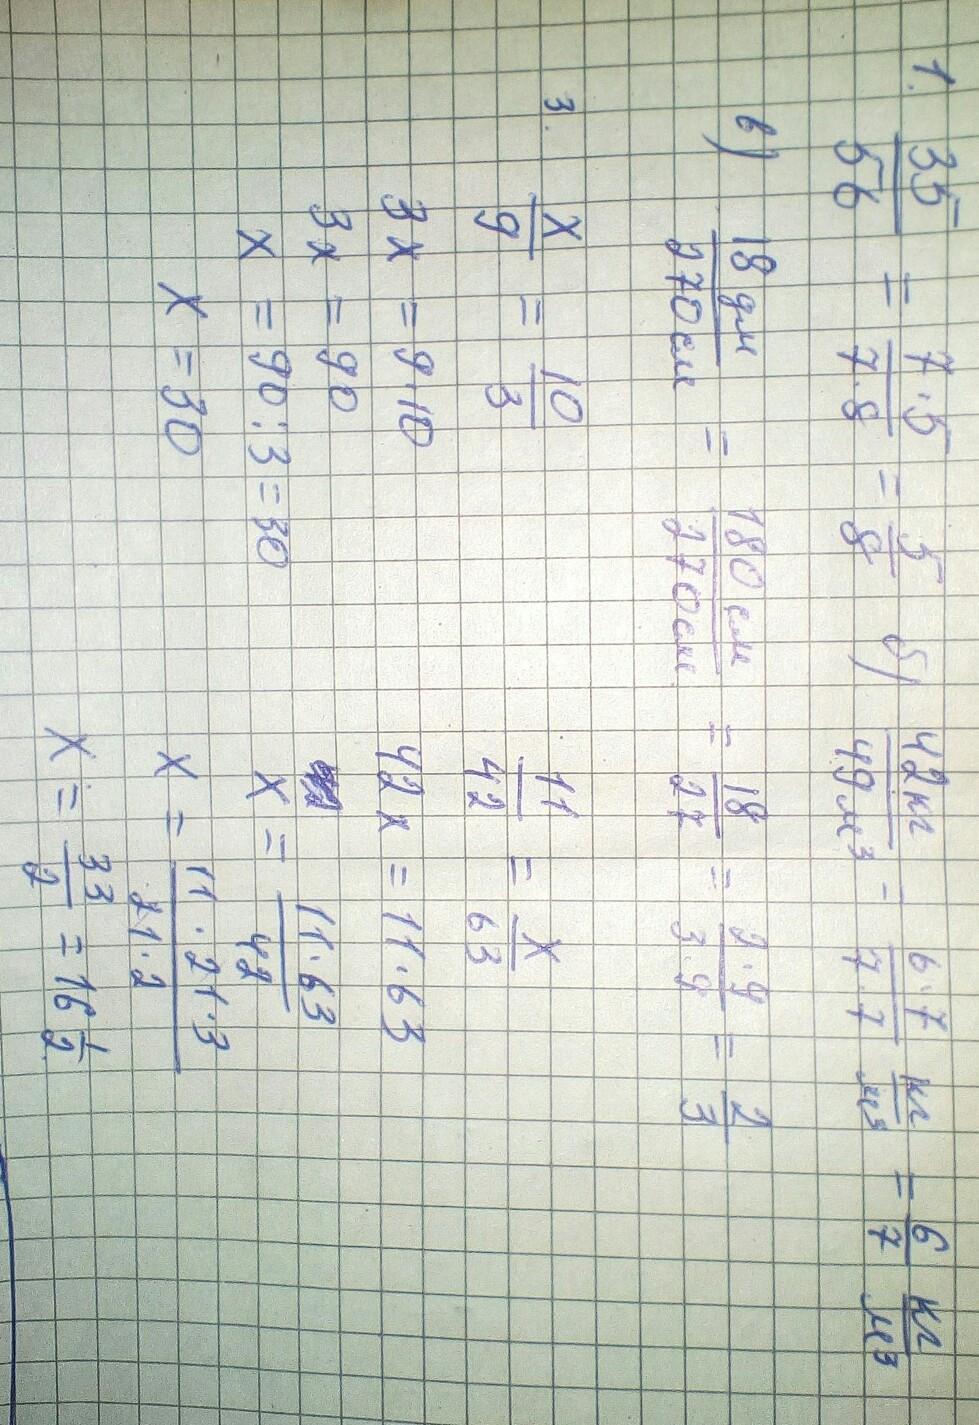 1. 35/56 = 7·5/7·8 = 5/8 б) 42кг/49м³ = 6·7/7·7 кг/м³ = 6/7 кг/м³
в) 18дм/270см = 180см/270см = 18/27 = 2·9/3·9 = 2/3
3. x/9 = 10/3 11/42 = x/63
3x = 9·10 42x = 11·63
3x = 90
x = 90:3 = 30 x = 11·63/42
x = 30 x = 11·21·3/21·2
x = 33/2 = 16 1/2